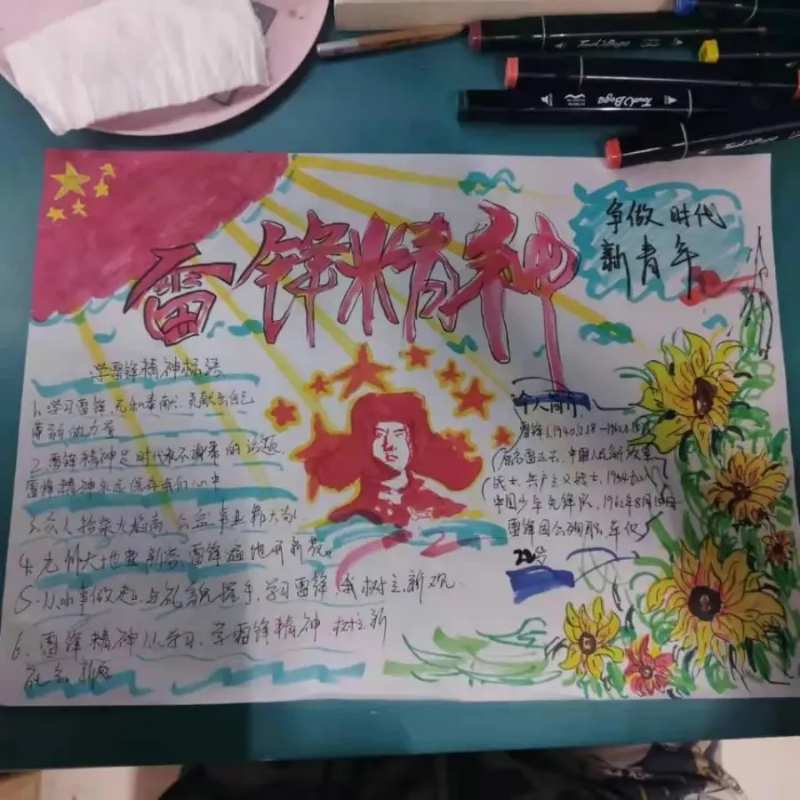 雷锋精神
争做时代
新青年
学雷锋精神标语
1. 学习雷锋,无私奉献,贡献出自己
薄弱微力量
2. 雷锋精神是时代永不褪色的话题,
雷锋精神永远保存我们心中
3. 众人拾柴火焰高,公益事业靠大家
4. 九州大地,雷锋遍地开新花。
5. 从小事做起,与礼貌握手,学习雷锋,我树立新风
6. 雷锋精神认学习,学雷锋精神 树立新
社会新风
个人简介
雷锋(1940.12.18-1962.8.15)
原名雷正兴,中国人民解放军
战士,共产主义战士,1954加入
中国少年先锋队,1962年8月15日
雷锋因公殉职,年仅
22岁
Touch Boga